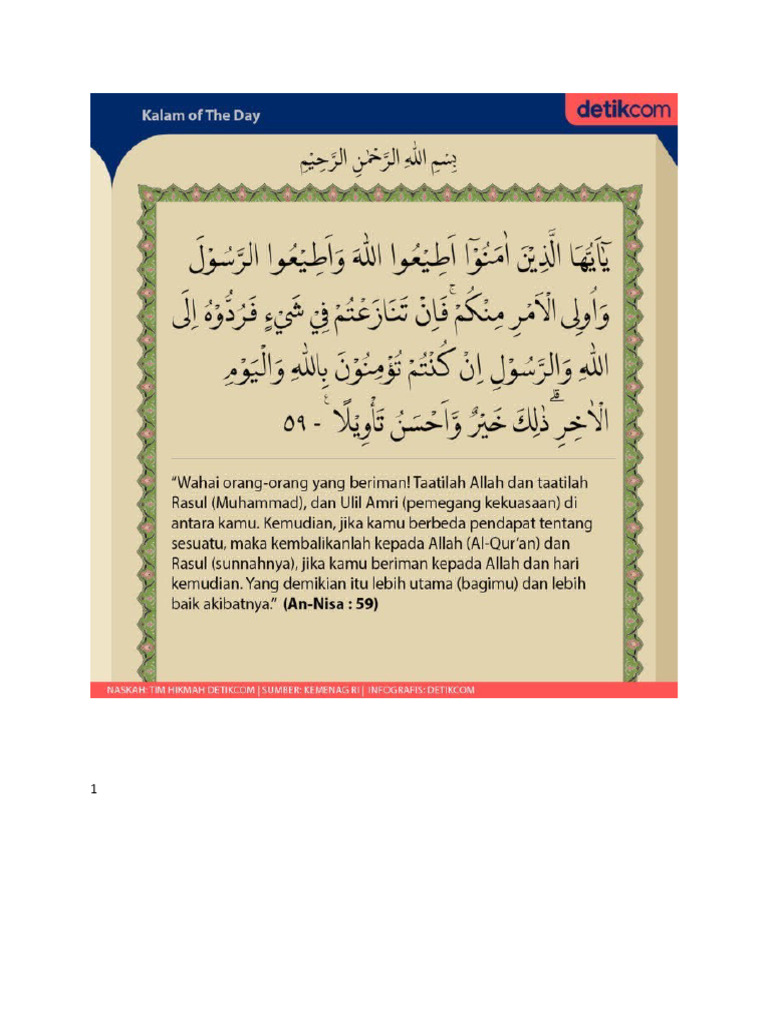 Kalam of The Day
detikcom
بِسْمِ اللهِ الرَّحْمٰنِ الرَّحِيْمِ
يٰٓاَيُّهَا الَّذِيْنَ اٰمَنُوْٓا اَطِيْعُوا اللهَ وَاَطِيْعُوا الرَّسُوْلَ
وَاُولِى الْاَمْرِ مِنْكُمْۚ فَاِنْ تَنَازَعْتُمْ فِيْ شَيْءٍ فَرُدُّوْهُ اِلَى
اللهِ وَالرَّسُوْلِ اِنْ كُنْتُمْ تُؤْمِنُوْنَ بِاللهِ وَالْيَوْمِ
الْاٰخِرِۗ ذٰلِكَ خَيْرٌ وَّاَحْسَنُ تَأْوِيْلًا ࣖ - ٥٩
“Wahai orang-orang yang beriman! Taatilah Allah dan taatilah
Rasul (Muhammad), dan Ulil Amri (pemegang kekuasaan) di
antara kamu. Kemudian, jika kamu berbeda pendapat tentang
sesuatu, maka kembalikanlah kepada Allah (Al-Qur’an) dan
Rasul (sunnahnya), jika kamu beriman kepada Allah dan hari
kemudian. Yang demikian itu lebih utama (bagimu) dan lebih
baik akibatnya.” (An-Nisa : 59)
NASKAH: TIM HIKMAH DETIKCOM | SUMBER: KEMENAG RI | INFOGRAFIS: DETIKCOM
1